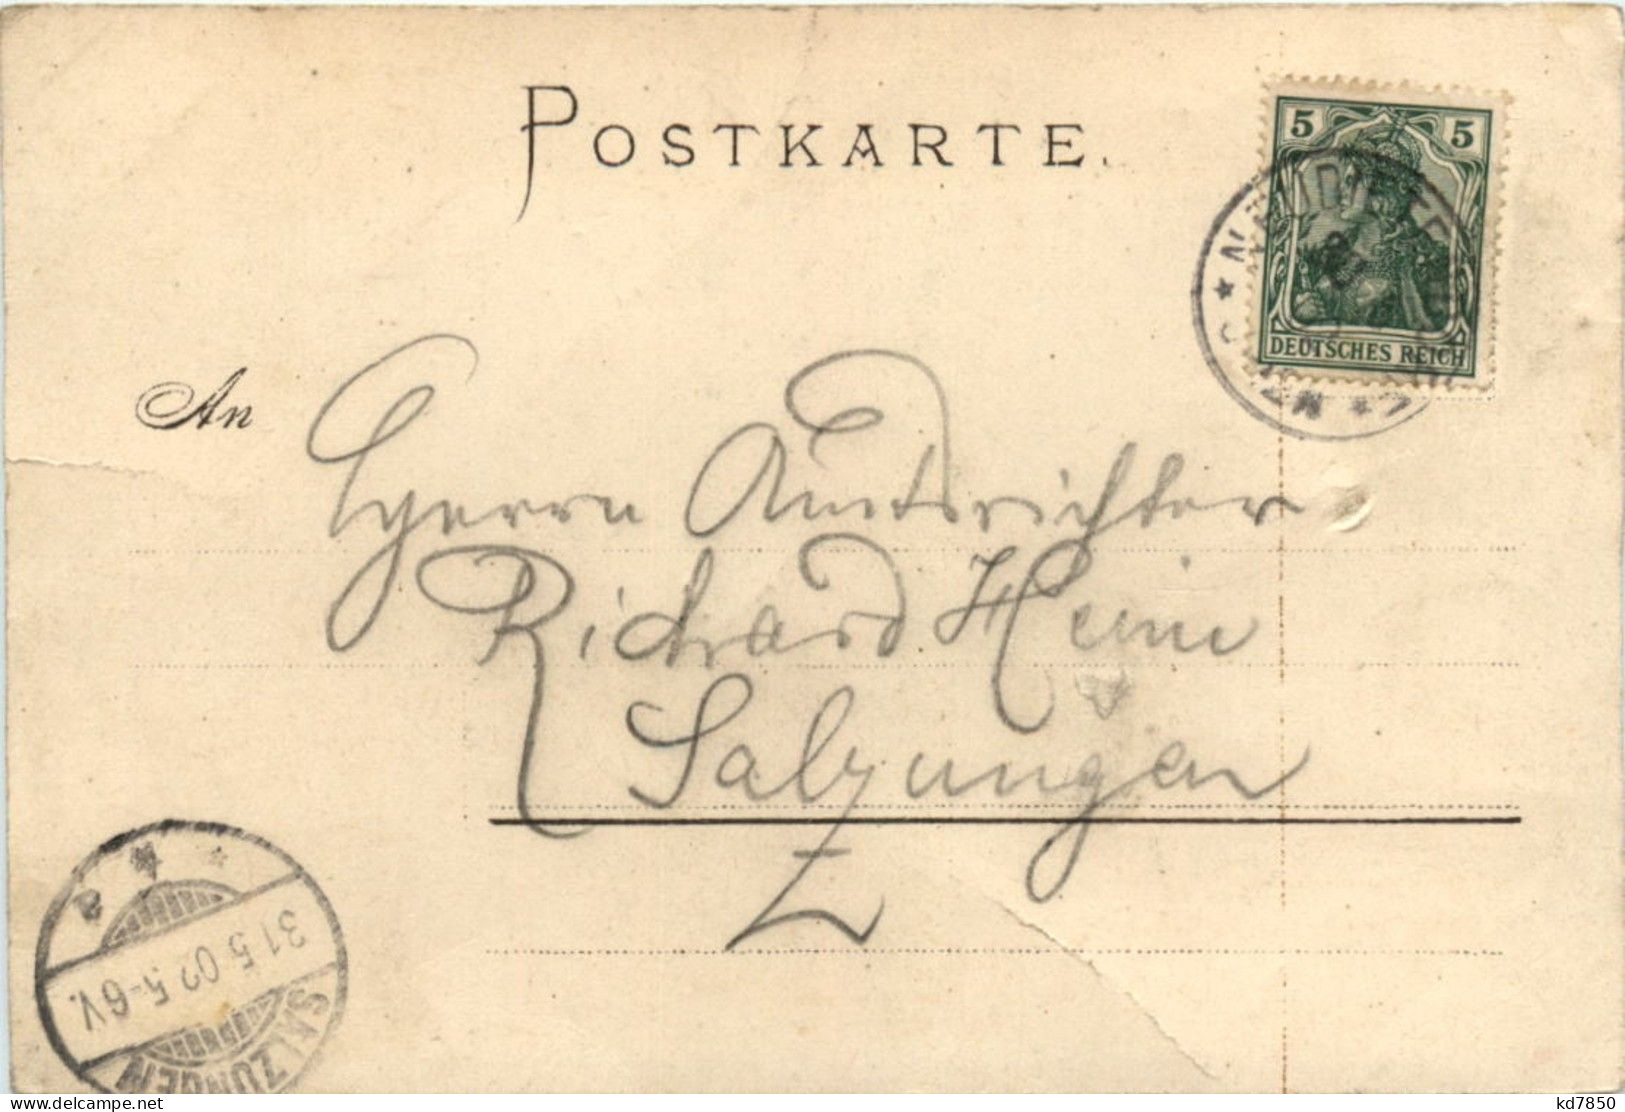 POSTKARTE.
5 5
DEUTSCHES REICH
An
Herrn Amtsrichter
Richard Heim
Salzungen
31 5 02 5-6V.
SALZUNGEN
www.delcampe.net
kd7850